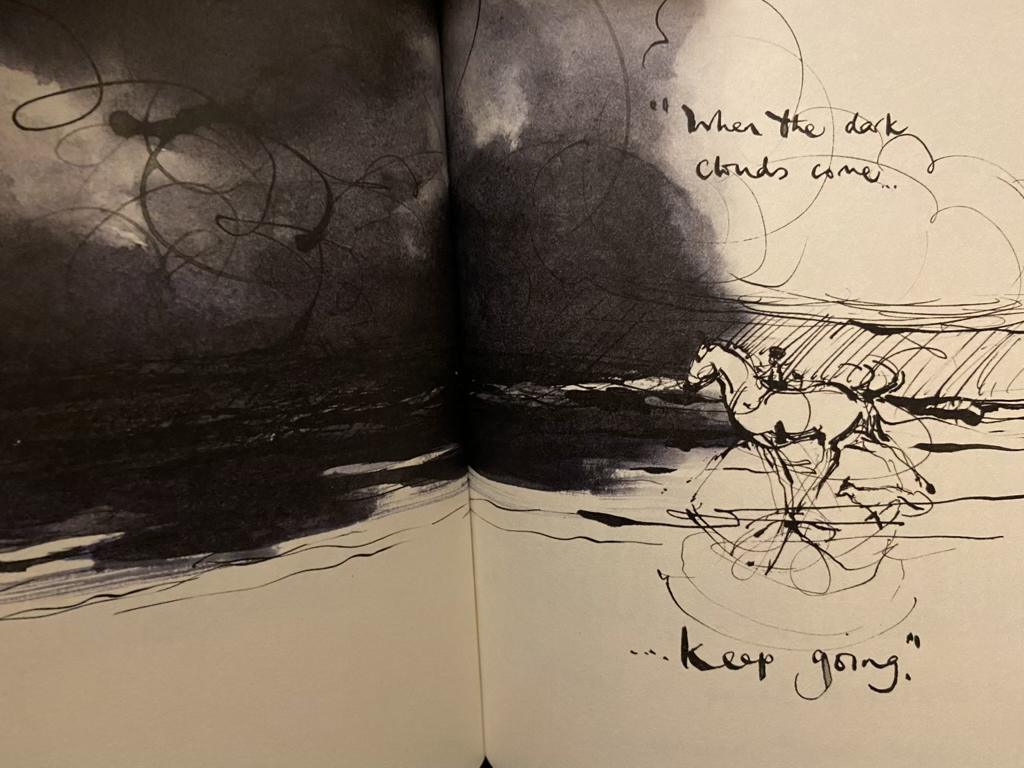 "When the dark
clouds come...
...keep going."